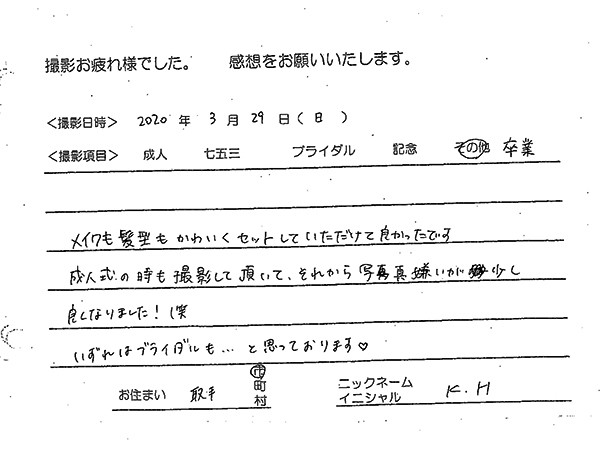 撮影お疲れ様でした。 感想をお願いいたします。
<撮影日時> 2020 年 3 月 29 日 ( 日 )
<撮影項目> 成人 七五三 ブライダル 記念 その他 卒業
メイクも髪型もかわいくセットしていただけて良かったです
成人式の時も撮影して頂いて、それから写真嫌いが少し
良くなりました!(笑
いずれはブライダルも… と思っております♡
お住まい 取手 市町村 ニックネーム イニシャル K.H